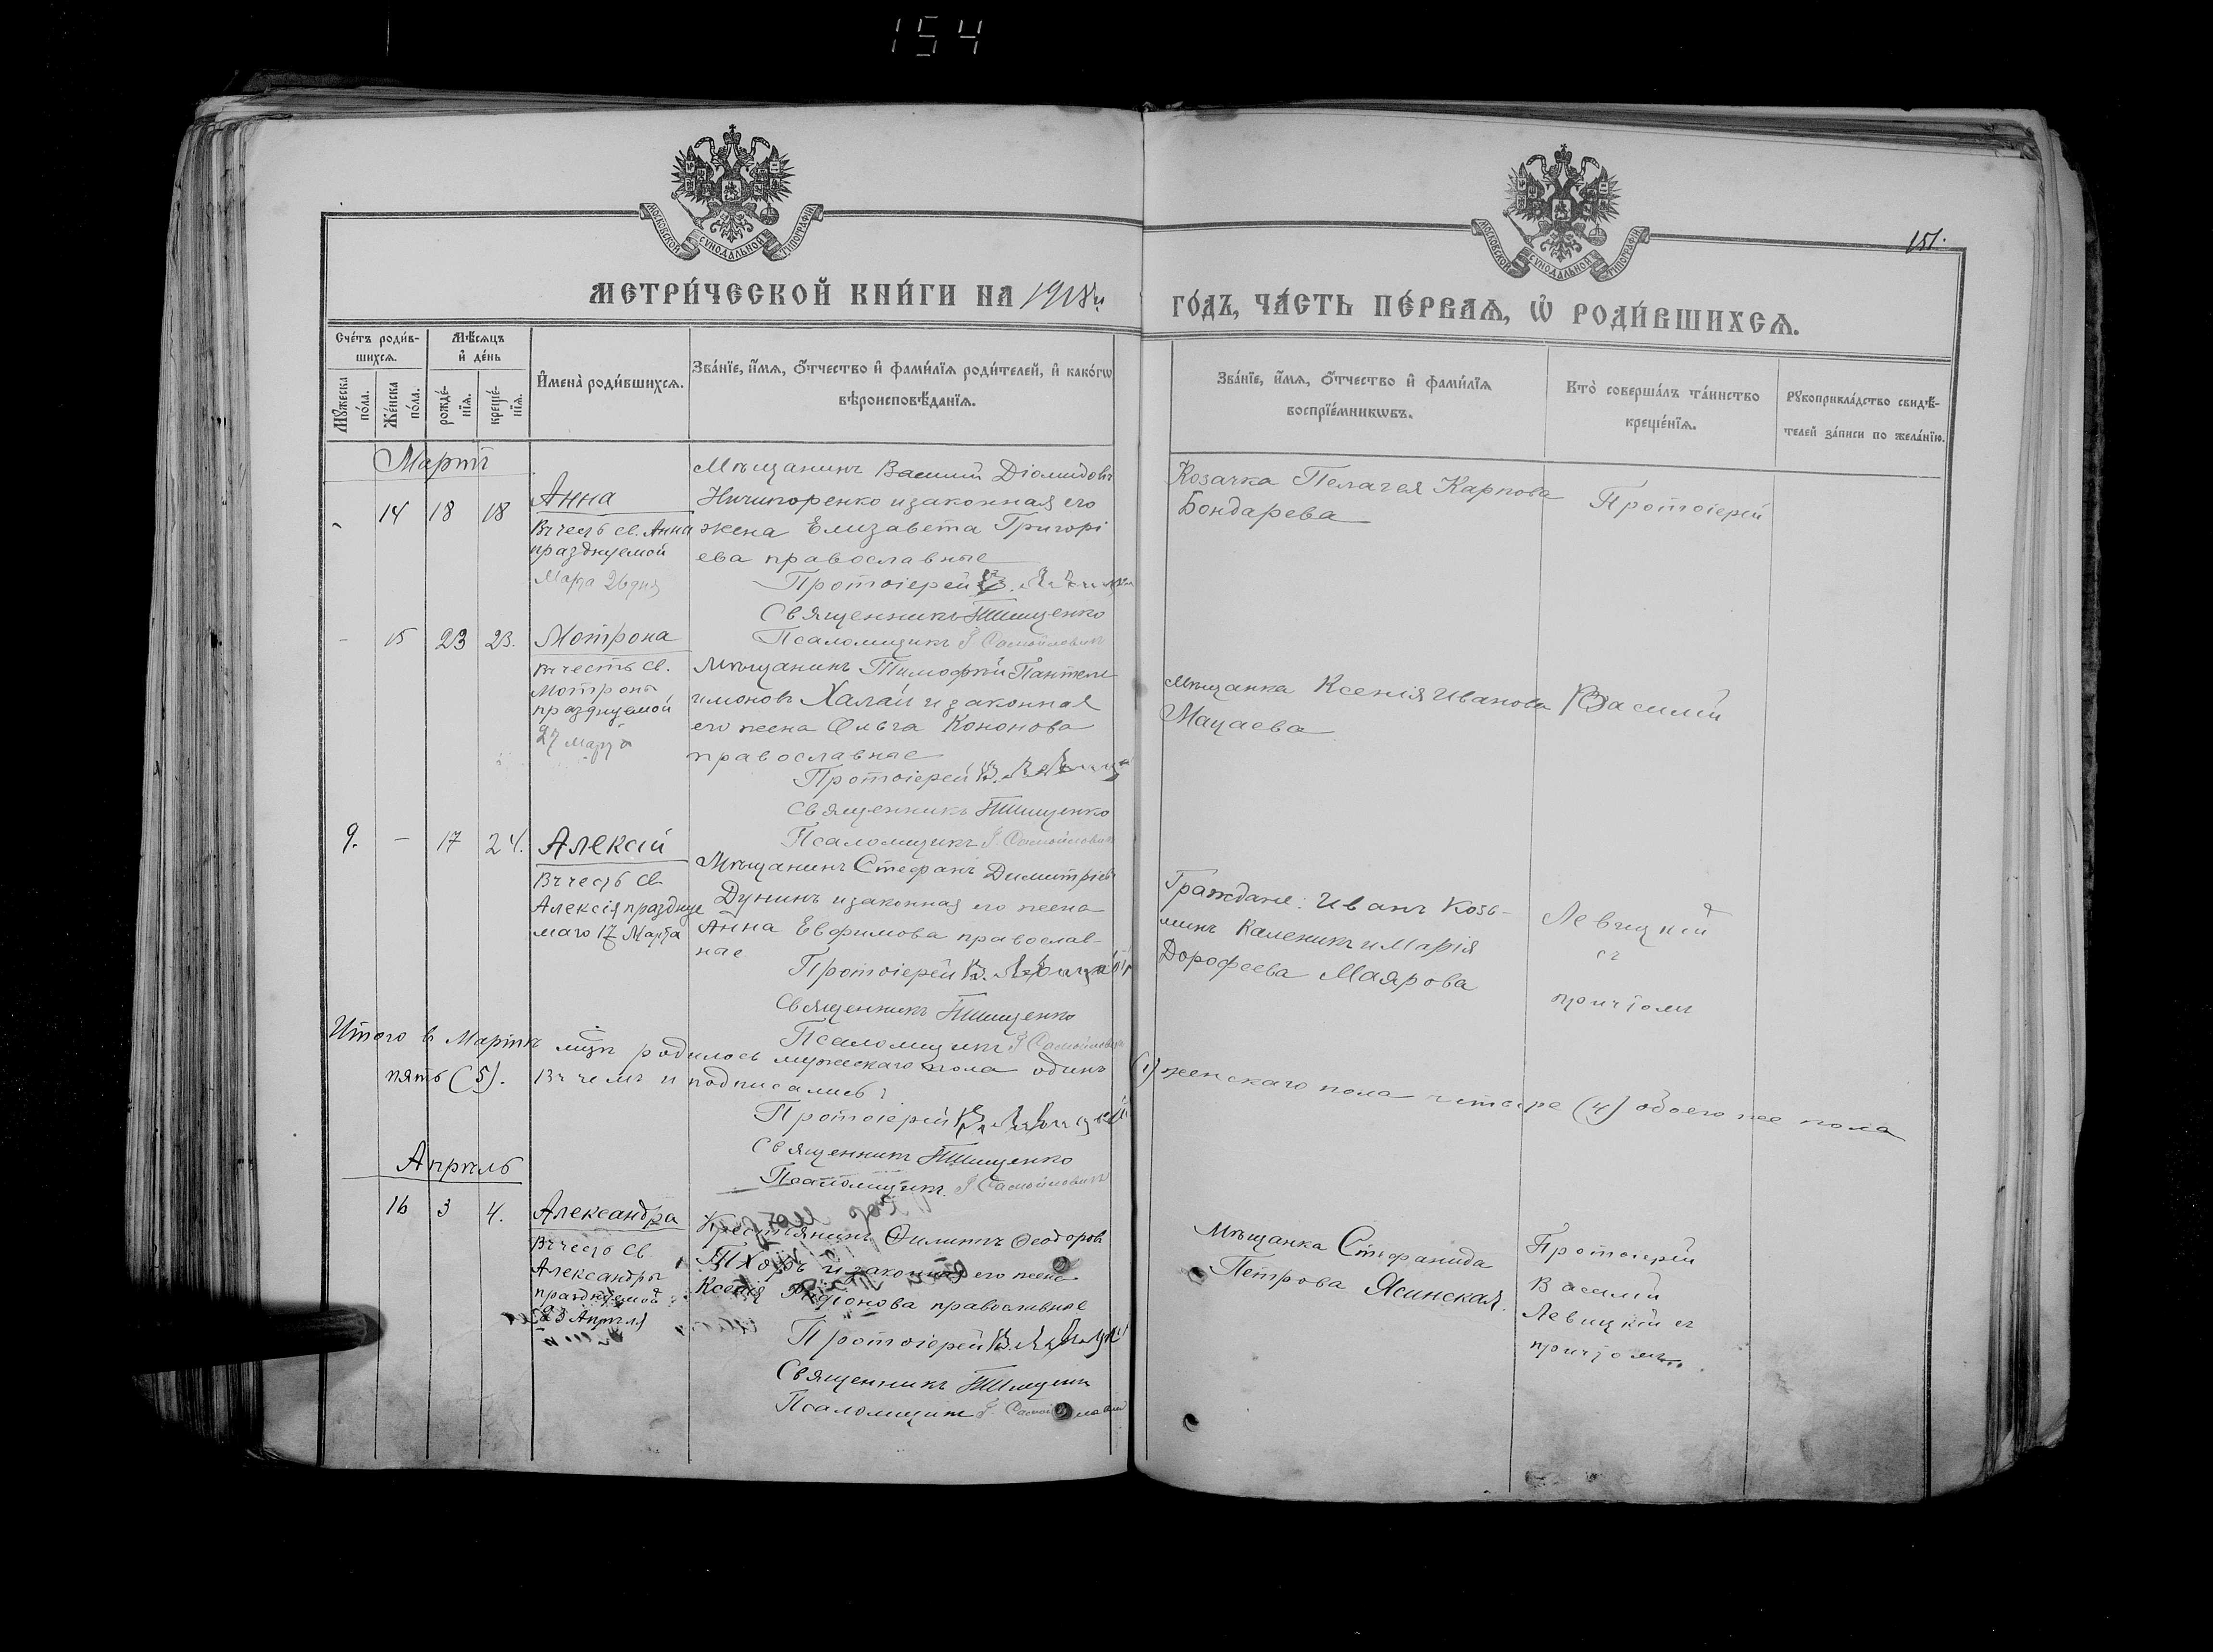 154
МОСКОВСКОЙ СѴНОДАЛЬНОЙ ТИПОГРАФІИ
МОСКОВСКОЙ СѴНОДАЛЬНОЙ ТИПОГРАФІИ
151.
МЕТРИ́ЧЕСКОЙ КНИ́ГИ НА 1918 й
ГО́ДЪ, ЧА́СТЬ ПЕ́РВАѦ, Ѡ҆ РОДИ́ВШИХСѦ.
Сче́тъ роди́в-
шихсѧ.
Мѣ́сѧцъ
и҆ де́нь
Мꙋ́жеска по́ла.
Же́нска по́ла.
рожде́-
нїѧ.
креще́-
нїѧ.
И҆мена̀ роди́вшихсѧ.
Зва́нїе, и҆́мѧ, ѻ҆́тчество и҆ фами́лїѧ роди́телей, и҆ како́гѡ
вѣроисповѣ́данїѧ.
Зва́нїе, и҆́мѧ, ѻ҆́тчество и҆ фами́лїѧ
воспрїе́мникѡвъ.
Кто̀ соверша́лъ та́инство
креще́нїѧ.
Рꙋкоприкла́дство свидѣ́-
телей за́писи по жела́нїю.
Мартъ
14 18 18
Анна
Въ честь св. Анны
празднуемой
Марта 26 дня
Мѣщанинъ Василій Діомидовъ
Ничипоренко и законная его
жена Елизавета Григорі
ева православные
Протоіерей В. Левицкій
Священникъ Тищенко
Псаломщикъ Самойловичъ
Козачка Пелагея Карпова
Бондарева
Протоіерей
- 15 23 23.
Мотрона
въ честь св.
Мотроны
празднуемой
27 марта
Мѣщанинъ Тимофей Пантеле
имоновъ Халай и законная
его жена Ольга Кононова
православные
Протоіерей В. Левицкій
Священникъ Тищенко
Псаломщикъ Самойловичъ
Мѣщанка Ксенія Иванова
Мацаева
Василій
9. - 17 24.
Алексій
Въ честь св.
Алексія празднуе
маго 17 Марта
Мѣщанинъ Стефанъ Димитріевъ
Дунинъ и законная его жена
Анна Евфимова православ-
ные
Протоіерей В. Левицкій
Священникъ Тищенко
Псаломщикъ Самойловичъ
Граждане: Иванъ Козь-
минъ Каленикъ и Марія
Дорофеева Маярова
Левицкій
съ
причтомъ
Итого в Мартѣ м-цѣ родилось мужескаго пола одинъ (1) женскаго пола четыре (4) обоего же пола
пять (5). Въ чемъ и подписались:
Протоіерей В. Левицкій
Священникъ Тищенко
Псаломщикъ Самойловичъ
Апрѣль
16 3 4.
Александра
Въ честь св.
Александры
празднуемой
23 Апрѣля
Крестьянинъ Филиппъ Феодоровъ
Тхоръ и законная его жена
Ксенія православные
Протоіерей В. Левицкій
Священникъ Тищенко
Псаломщикъ Самойловичъ
Мѣщанка Стефанида
Петрова Ясинская.
Протоіерей
Василій
Левицкій съ
причтомъ.